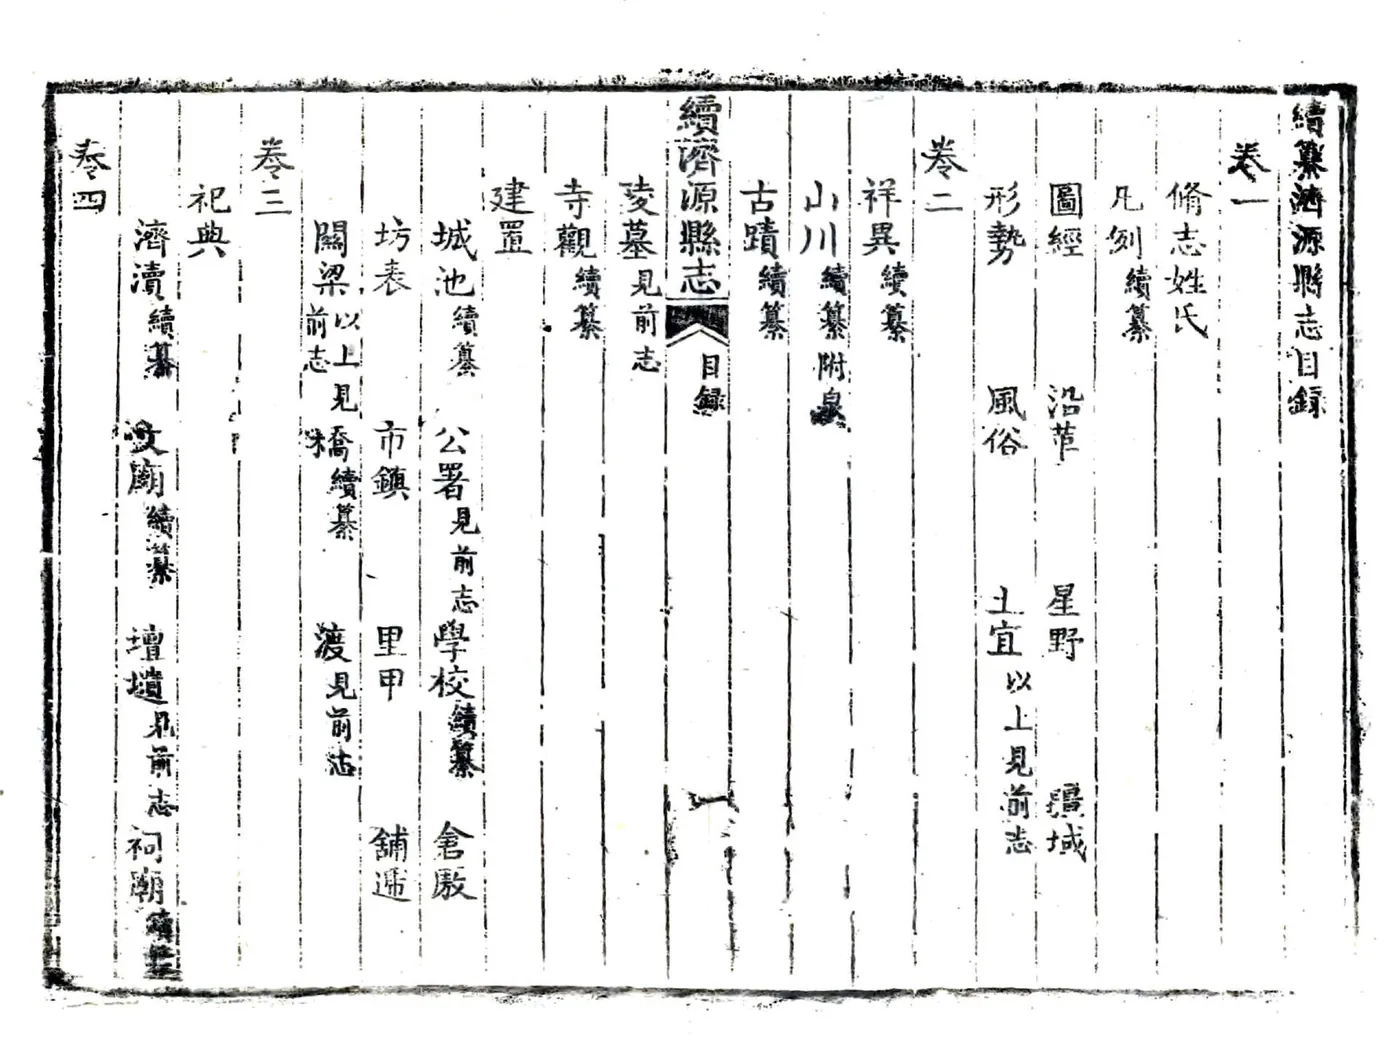 續纂濟源縣志目録
卷一
脩志姓氏
凡例續纂
圖經 沿革 星野 疆域
形勢 風俗 土宜以上見前志
卷二
祥異續纂
山川續纂附泉
古蹟續纂
續濟源縣志 目録 一
陵墓見前志
寺觀續纂
建置
城池續纂 公署見前志 學校續纂 倉厫
坊表 市鎮 里甲 舖遞
關梁以上見前志 橋續纂 渡見前志
卷三
祀典
濟瀆續纂 文廟續纂 壇壝見前志 祠廟續纂
卷四